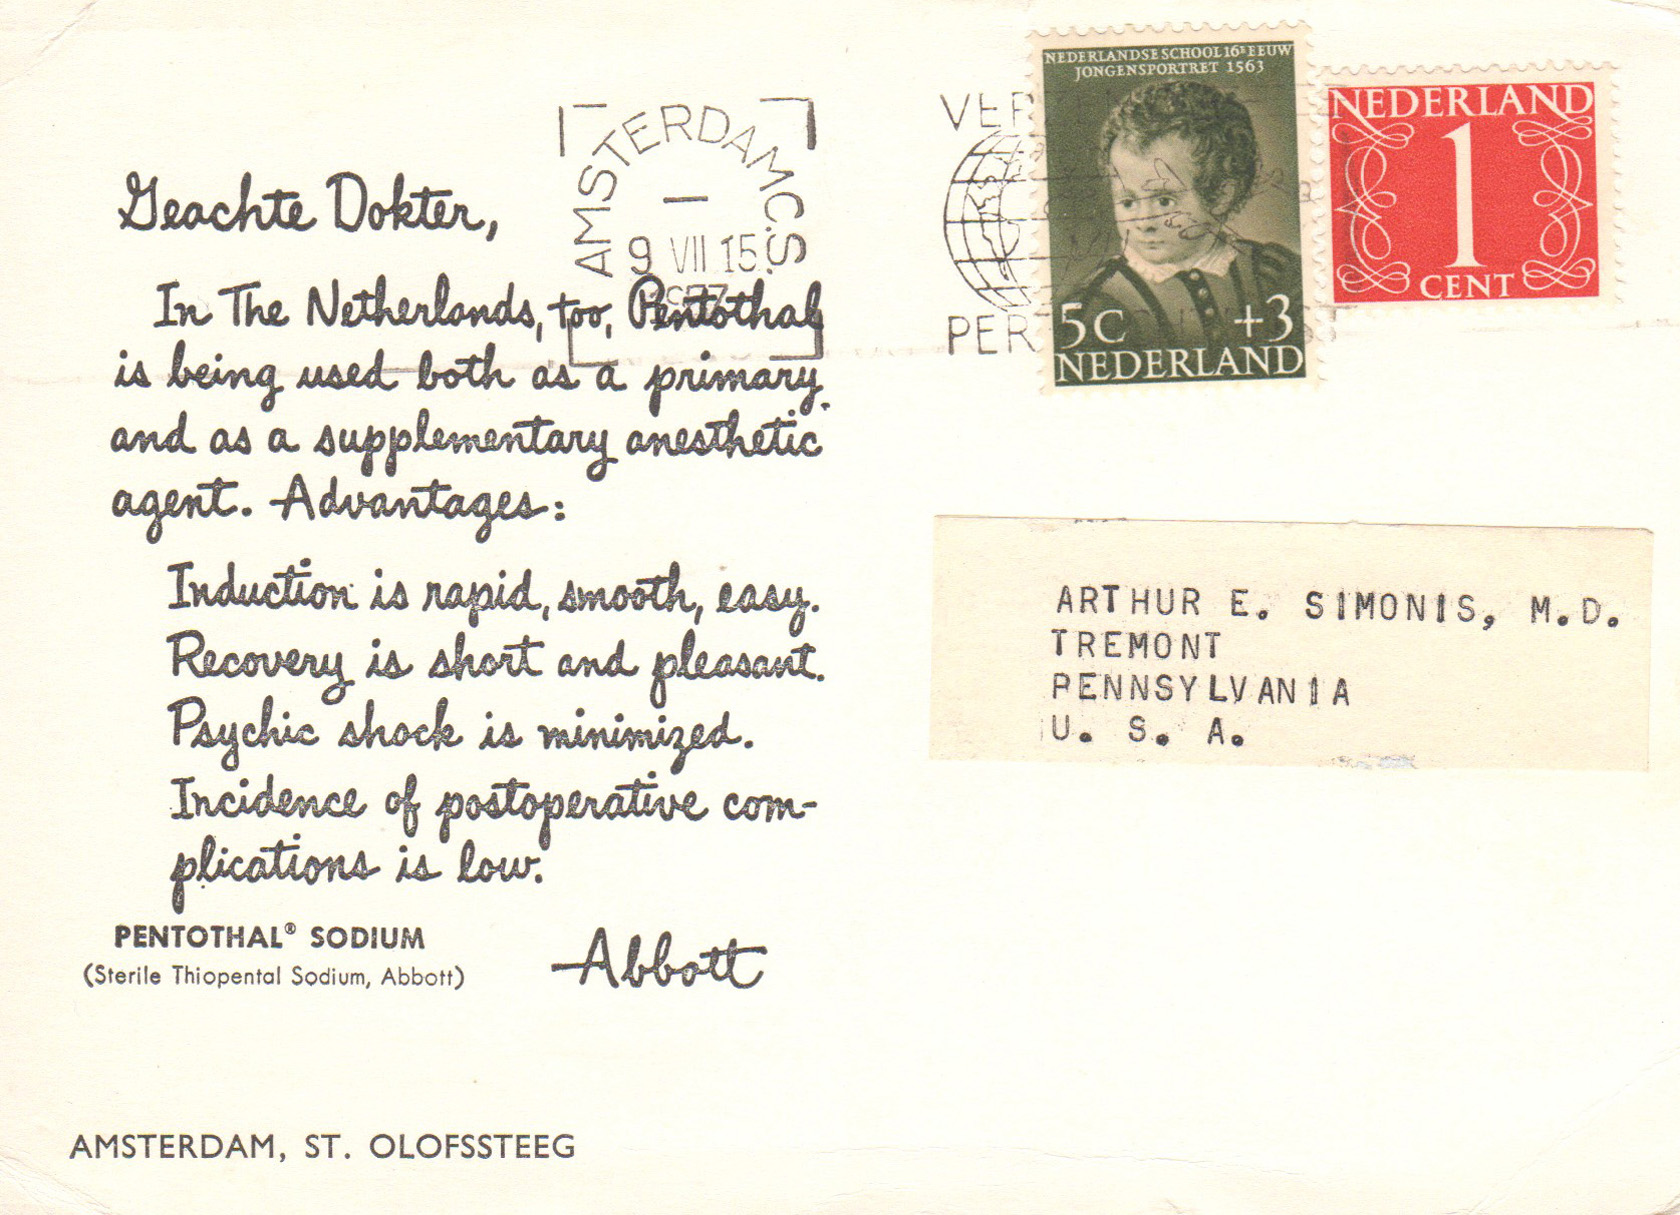 Geachte Dokter,
In The Netherlands, too, Pentothal
is being used both as a primary
and as a supplementary anesthetic
agent. Advantages:
Induction is rapid, smooth, easy.
Recovery is short and pleasant.
Psychic shock is minimized.
Incidence of postoperative com-
plications is low.
PENTOTHAL® SODIUM
(Sterile Thiopental Sodium, Abbott)
Abbott
AMSTERDAM, ST. OLOFSSTEEG
AMSTERDAM C.S.
9 VII 15
NEDERLANDSE SCHOOL 16E EEUW
JONGENSPORTRET 1563
5C +3
NEDERLAND
NEDERLAND
1
CENT
PER
ARTHUR E. SIMONIS, M.D.
TREMONT
PENNSYLVANIA
U. S. A.